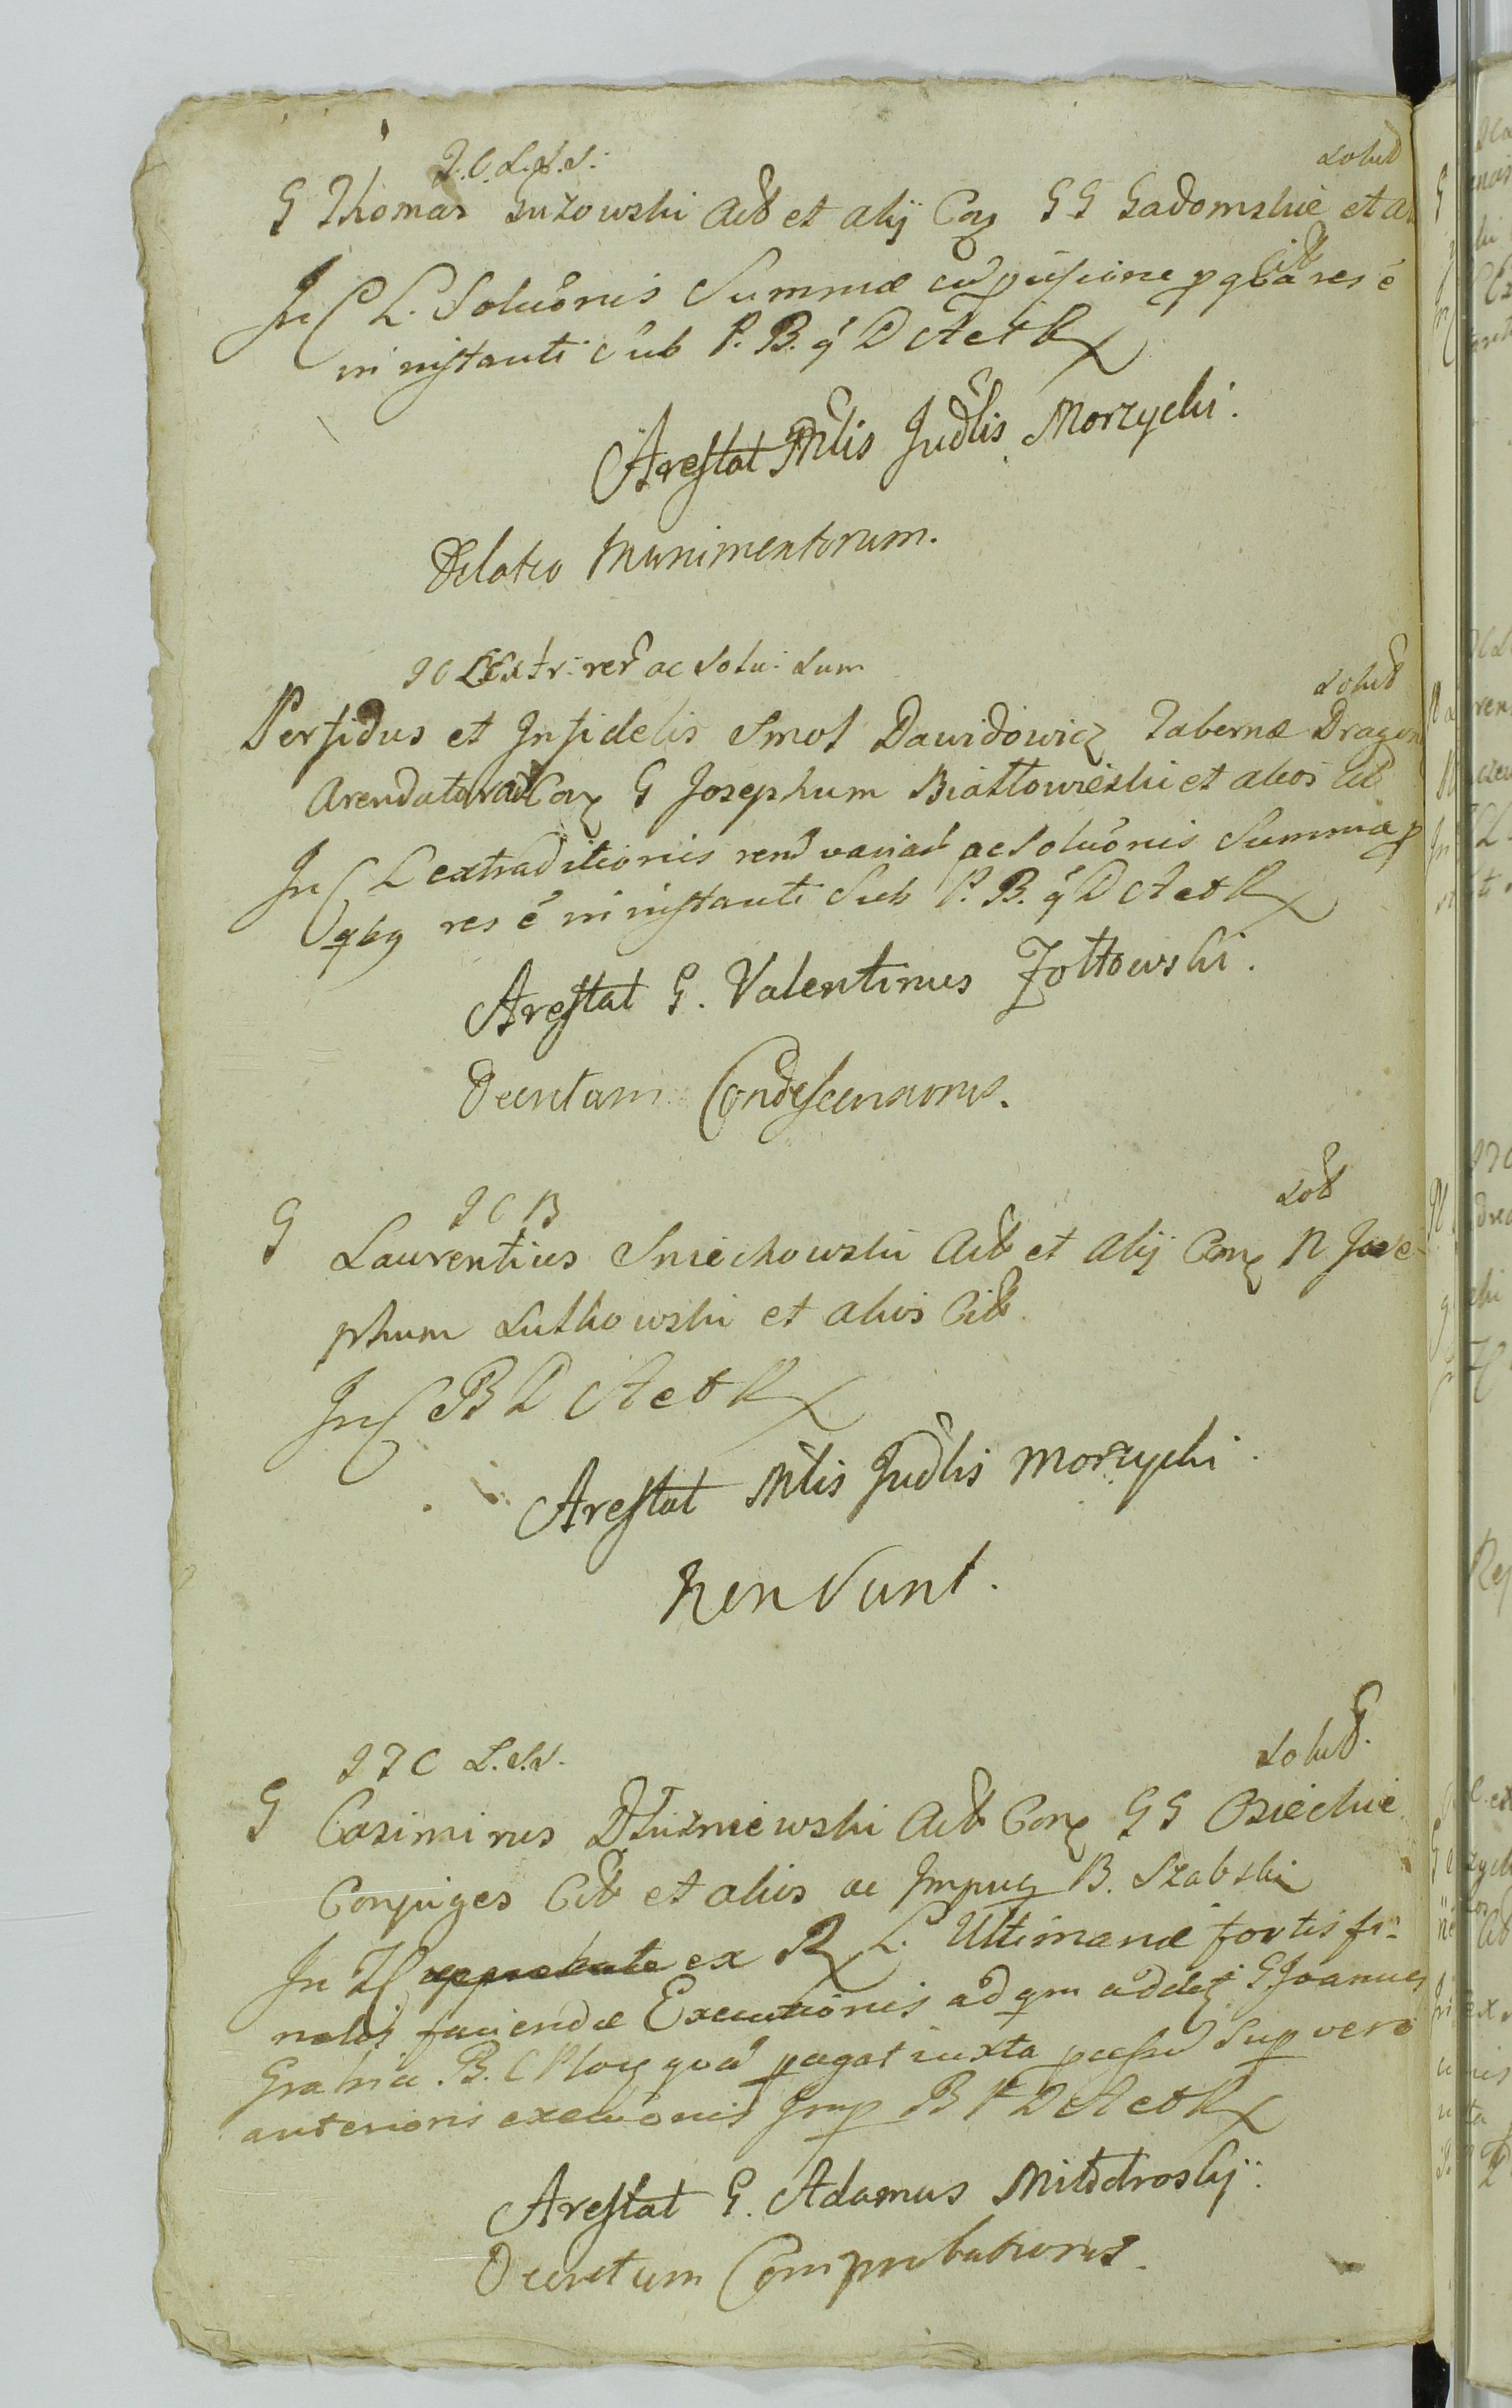 J. C. L. S. S. solut
G Thomas Guzowski Act et alij Con GG Gadomskie et al
Cit
In C L. Solutionis Summae p qua res e
in instanti sub P. B. q D A et R
Arestat Mlis Judlis Morzycki.
Delatio Munimentorum.
J C L Extr: rer ac Solu: Sum solut
Perfidus et Infidelis Smol Dawidowicz Tabernae Dragon
Arendator act Con G Josephum Białłowieski et alios Cit
In C L extraditionis rerum variar ac Solutionis Summae p
qbg res e in instanti Sub P. B. q D A et R
Arestat G. Valentinus Zołtowski.
Decretum Condescensionis.
J C B Sot
G Laurentius Sniechowski Act et alij Con N Jose
phum Lutkowski et alios Cit
In C B D A et R
Arestat Mlis Judlis Morzycki
Non Sunt.
J J C L. S. S. solut.
G Casimirus Dłuzniewski Act Con GG Osieckie
Conjuges Cit et alios ac Impug B. Szabski
In ex R L. Ultimanae fortis fi-
nalis faciendae Executionis ad qm addet G Joannes
B. C Ploc quod pagat iuxta Sup vero
anterioris executionis Imp B P D A et R
Arestat G. Adamus
Decretum Comprobationis.